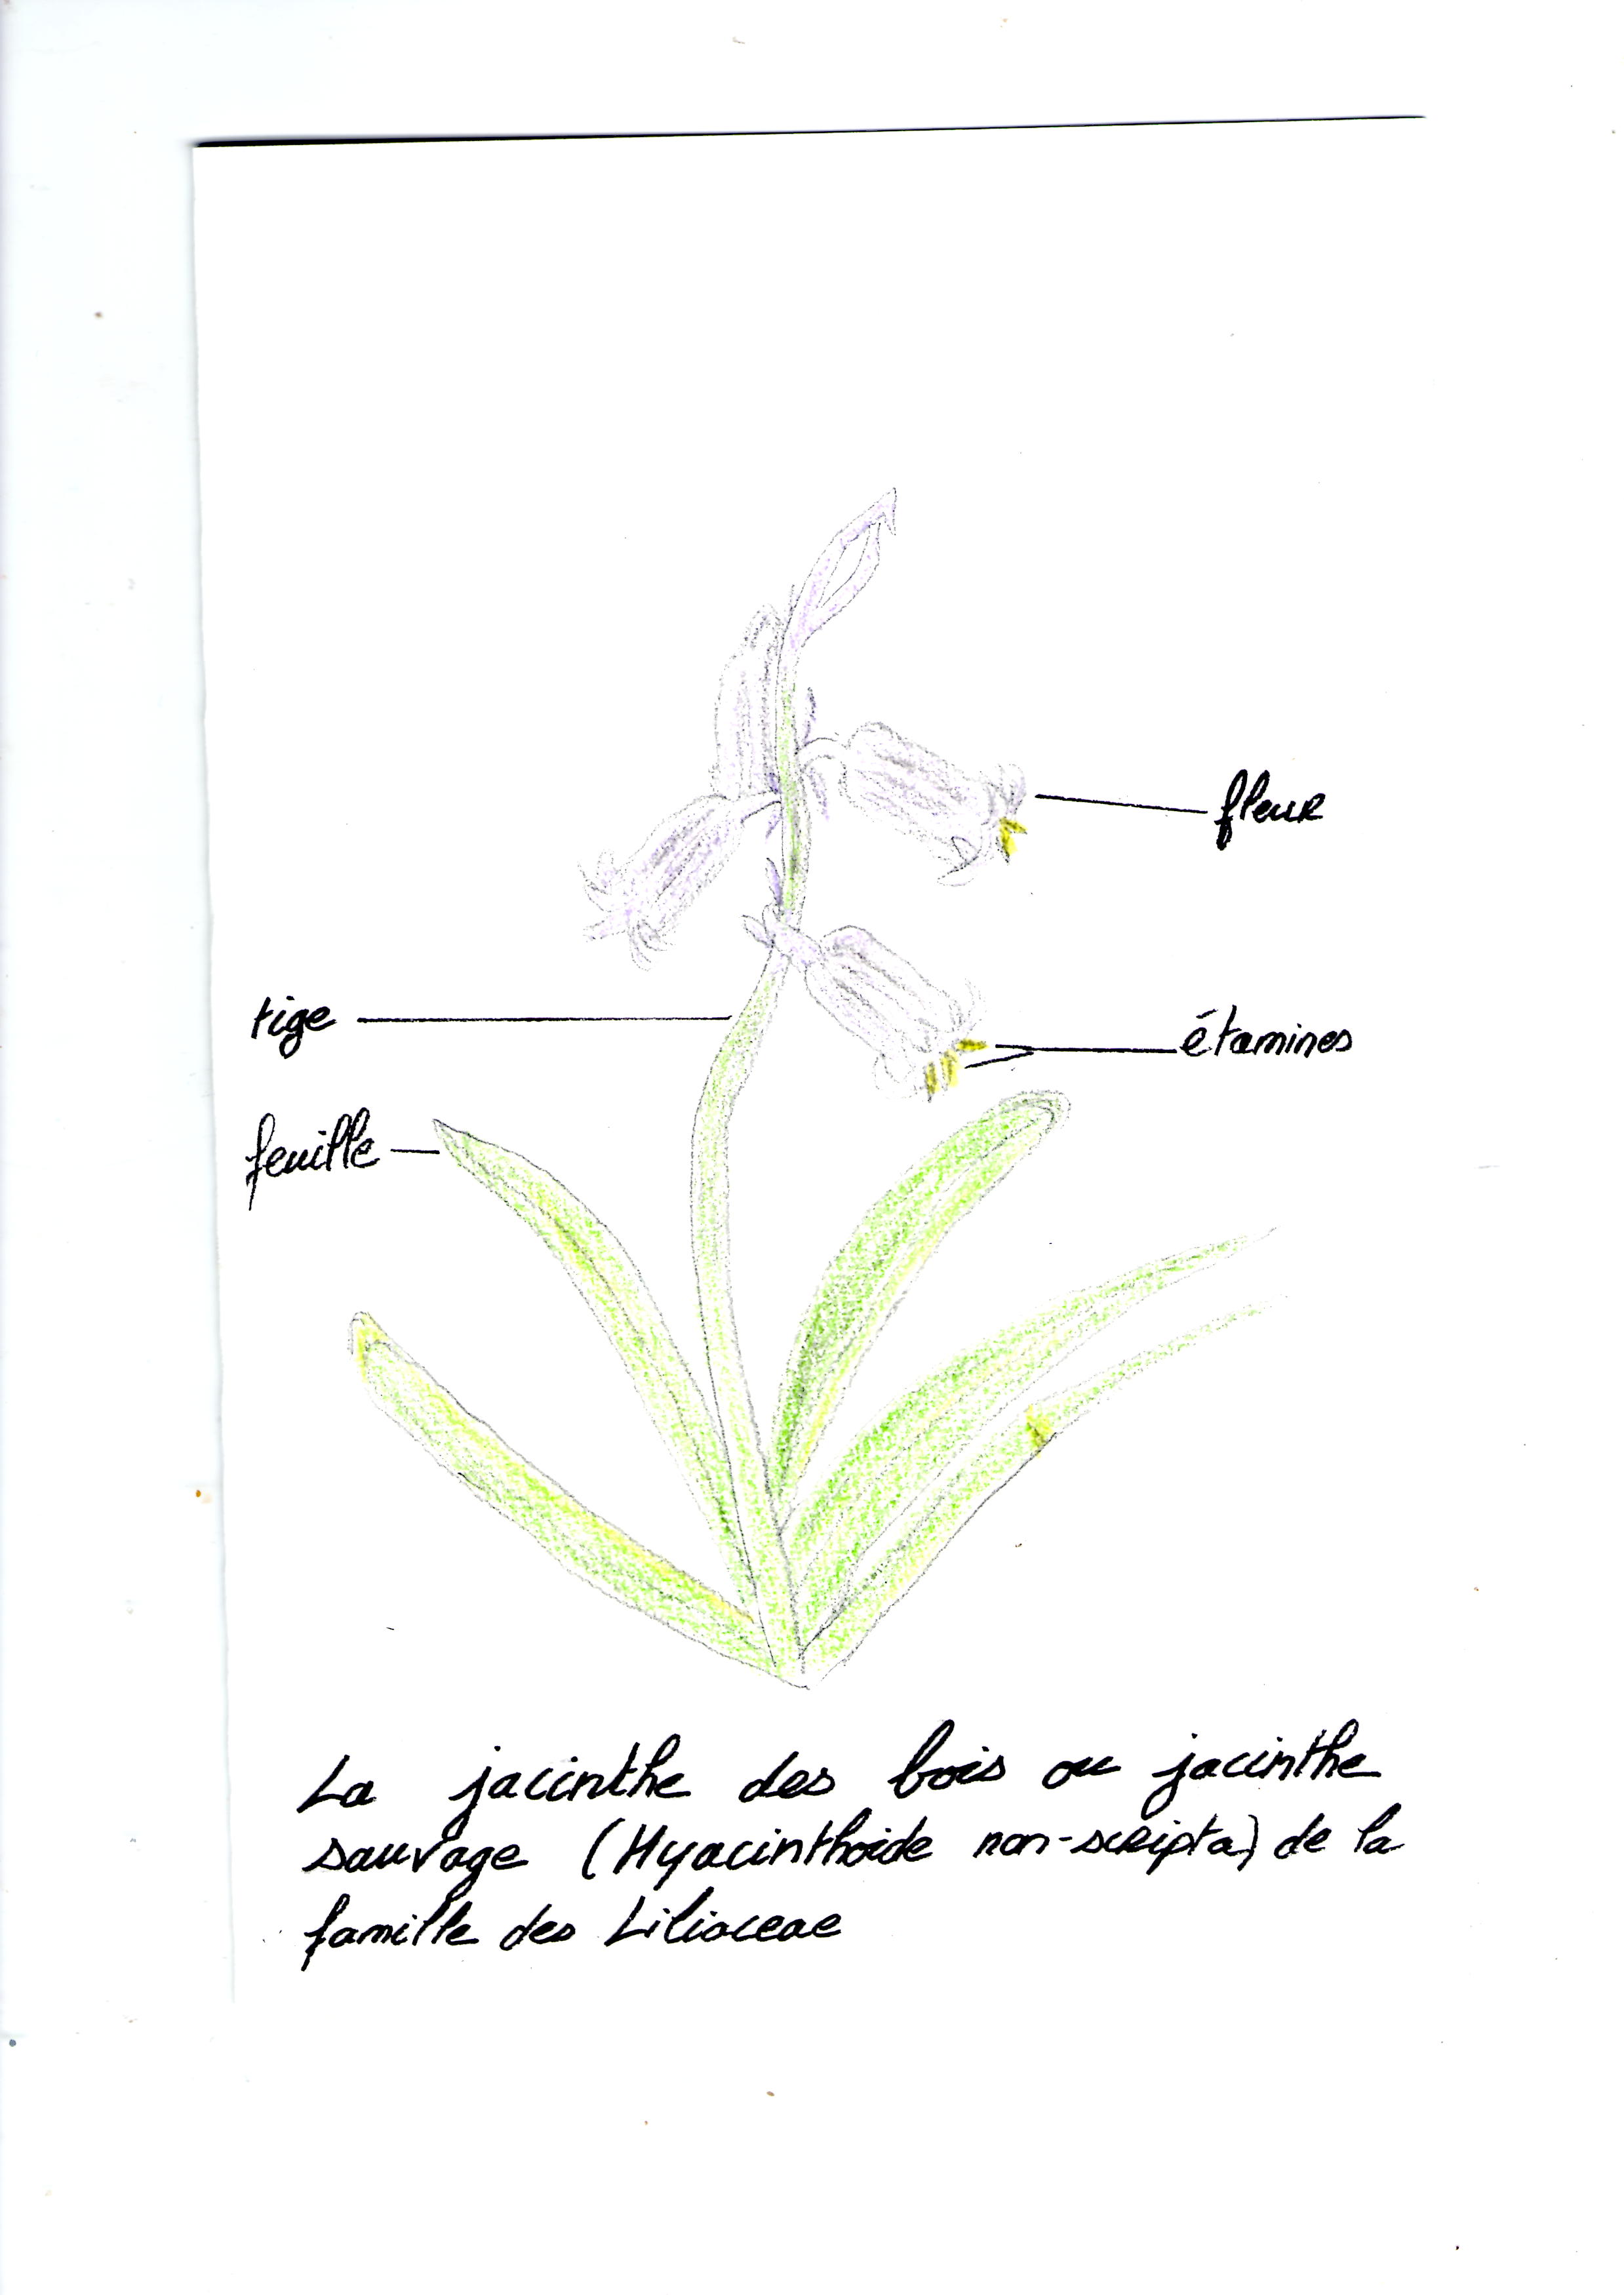 fleur
tige
étamines
feuille
La jacinthe des bois ou jacinthe
sauvage (Hyacinthoide non-scripta) de la
famille des Liliaceae